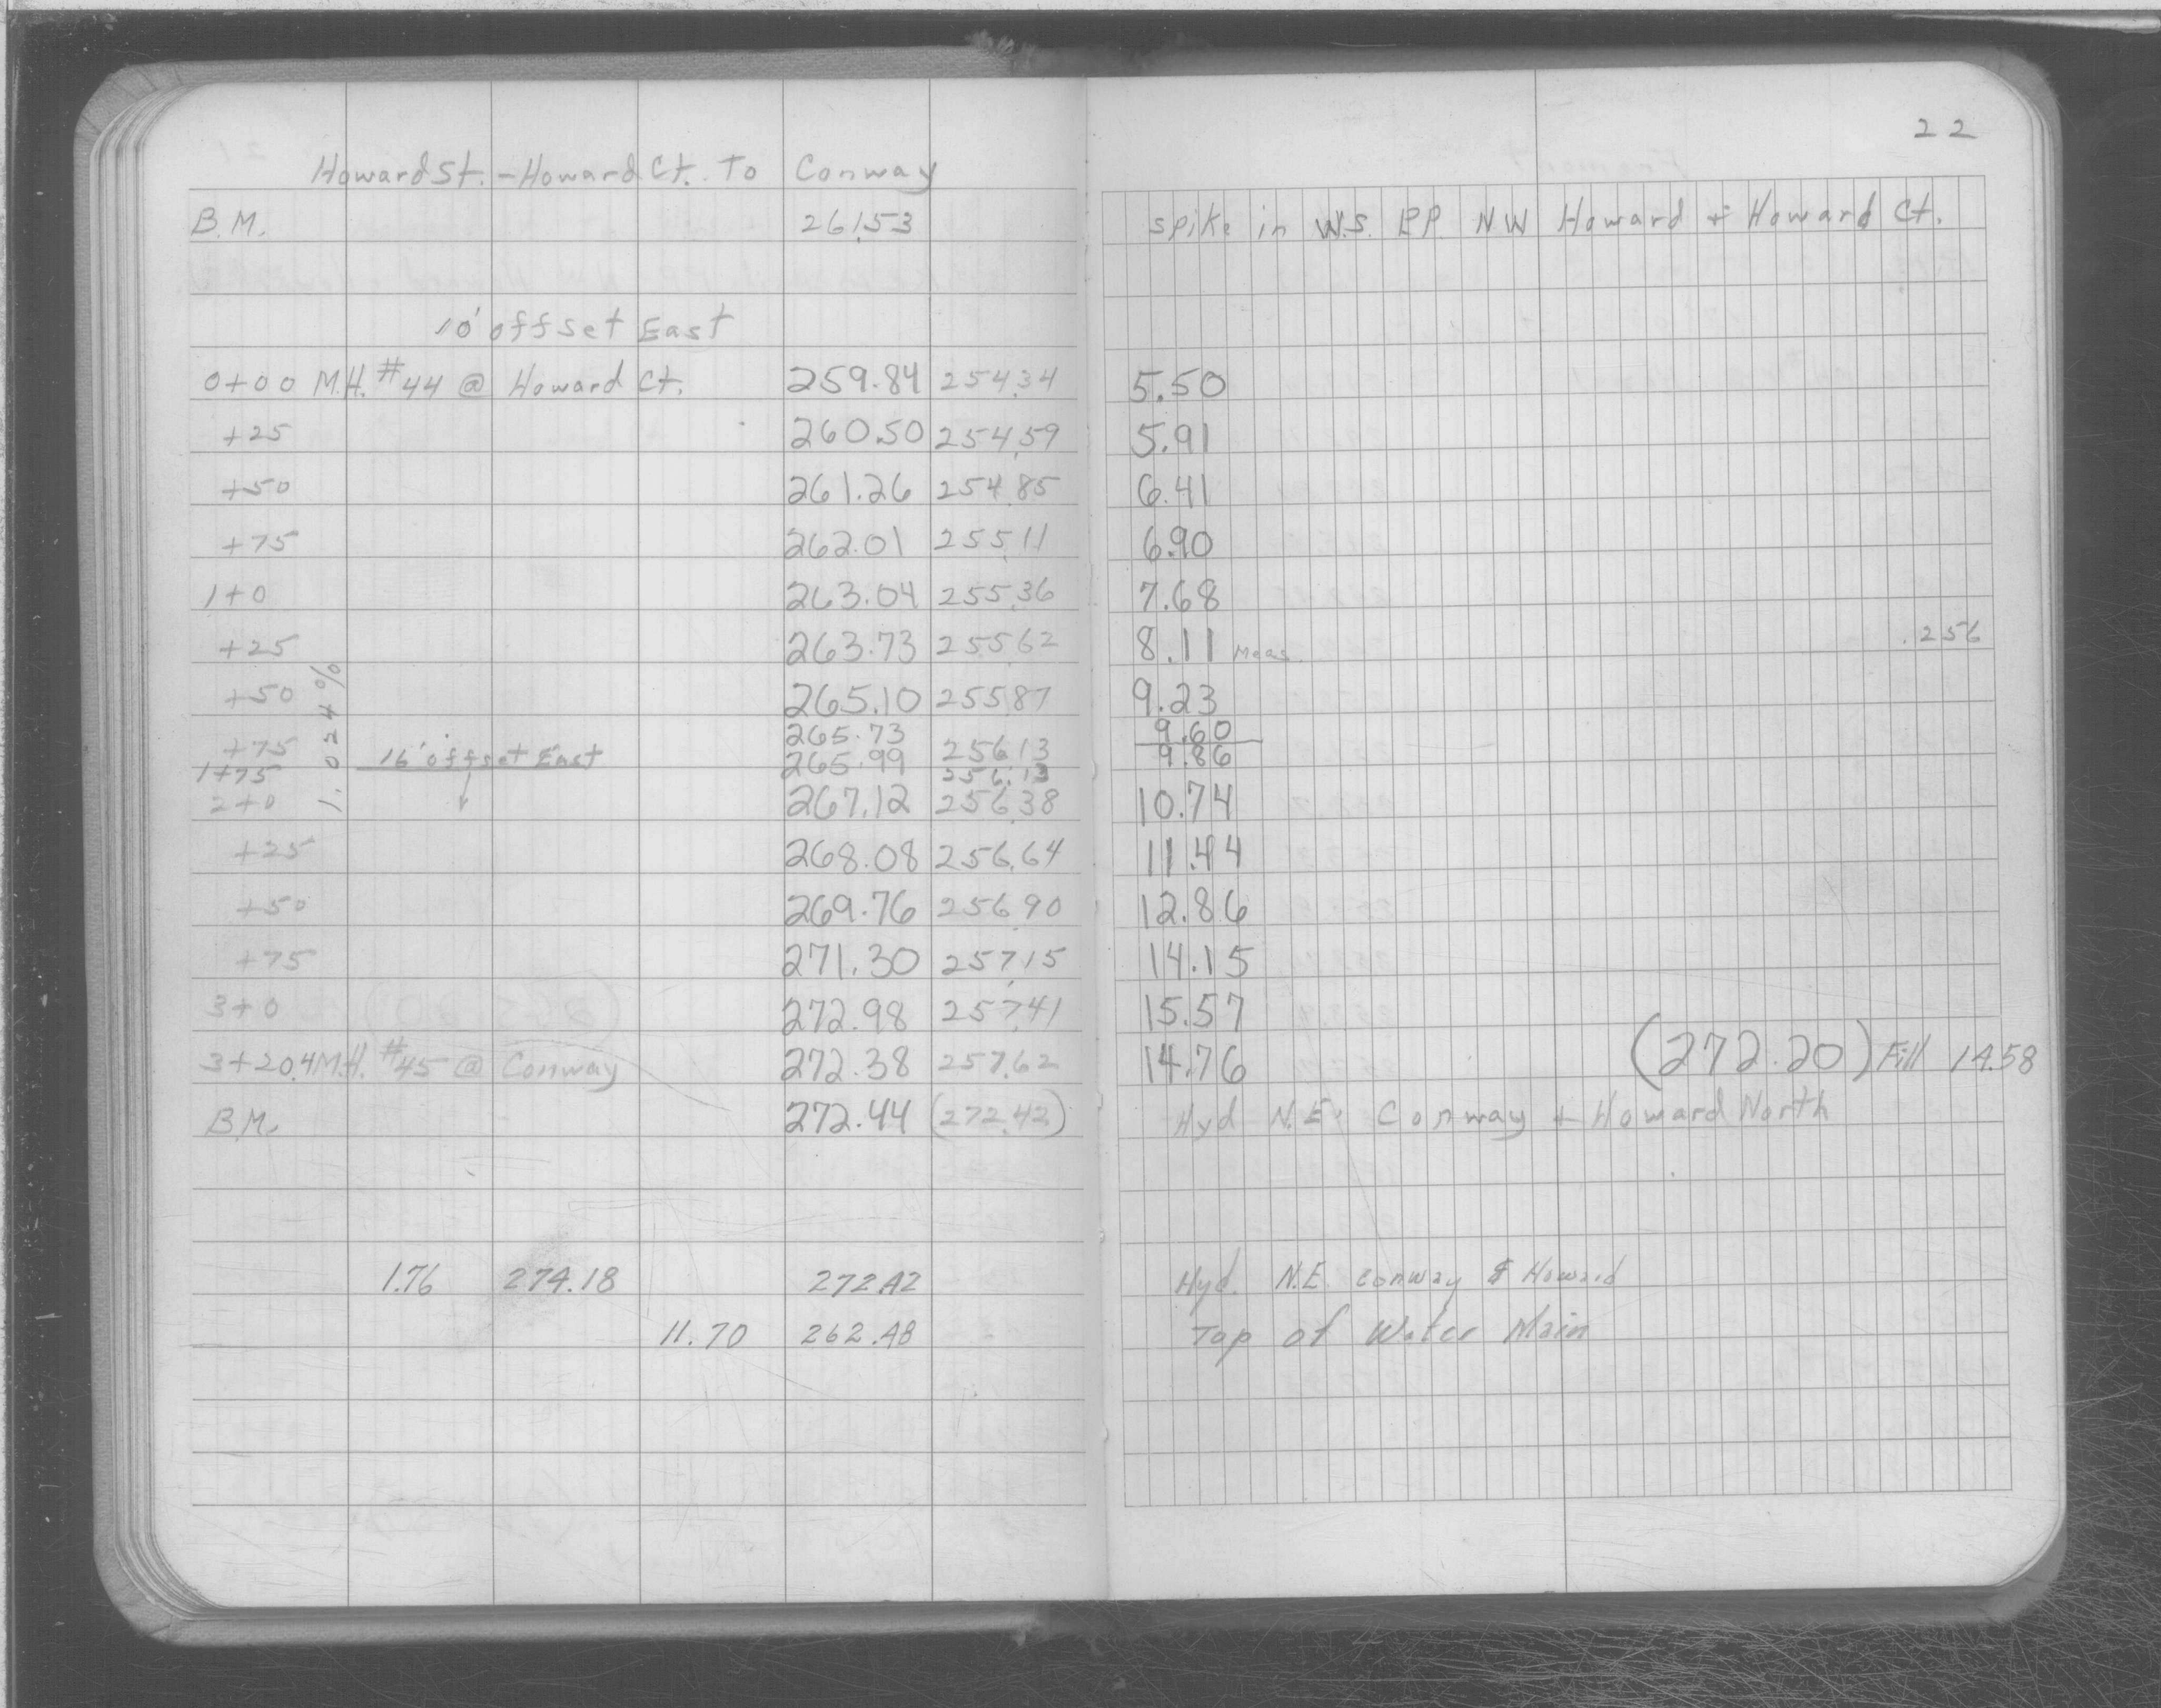 22
Howard St. - Howard Ct. To Conway
B.M. 261.53 spike in W.S. P.P. NW Howard + Howard Ct.
10' offset East
0+00 M.H. #44 @ Howard Ct. 259.84 254.34 5.50
+25 260.50 254.59 5.91
+50 261.26 254.85 6.41
+75 262.01 255.11 6.90
1+0 263.04 255.36 7.68
+25 263.73 255.62 8.11 Meas. .256
+50 265.10 255.87 9.23
1.024%
+75 265.73 256.13 9.60
1+75 16' offset East 265.99 256.13 9.86
2+0 267.12 256.38 10.74
+25 268.08 256.64 11.44
+50 269.76 256.90 12.86
+75 271.30 257.15 14.15
3+0 272.98 257.41 15.57
3+20.4 M.H. #45 @ Conway 272.38 257.62 14.76 (272.20) Fill 14.58
B.M. 272.44 (272.42) Hyd N.E. Conway + Howard North
1.76 274.18 272.42 Hyd. N.E. Conway & Howard
11.70 262.48 Top of Water Main